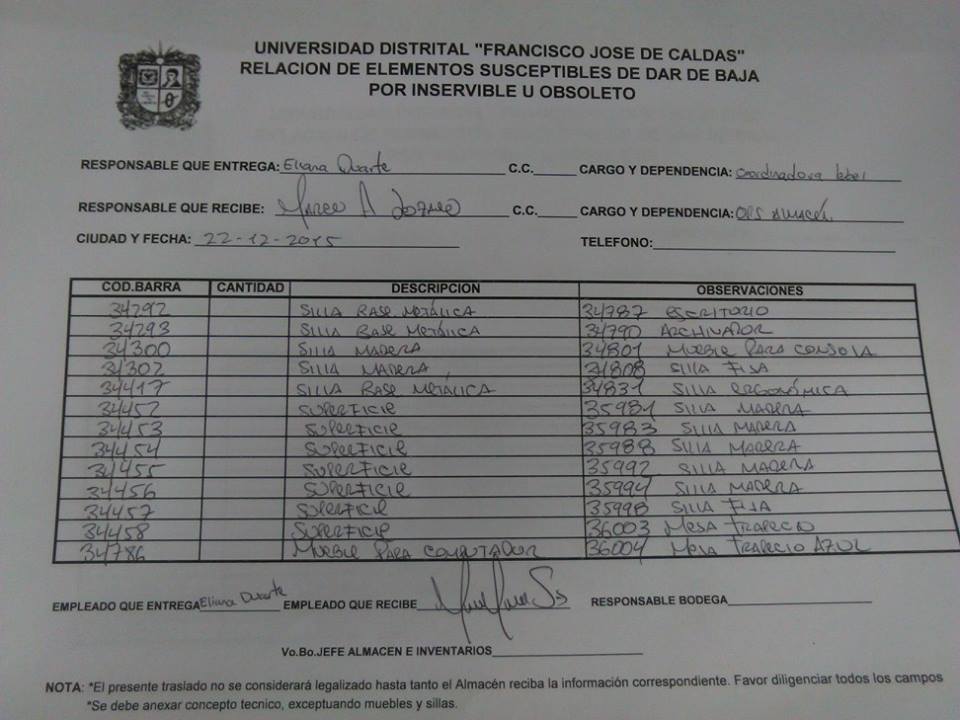 UNIVERSIDAD DISTRITAL "FRANCISCO JOSE DE CALDAS"
RELACION DE ELEMENTOS SUSCEPTIBLES DE DAR DE BAJA
POR INSERVIBLE U OBSOLETO
RESPONSABLE QUE ENTREGA: Eliana Duarte C.C. CARGO Y DEPENDENCIA: coordinadora
RESPONSABLE QUE RECIBE: Marco A Lozano C.C. CARGO Y DEPENDENCIA: OPS
CIUDAD Y FECHA: 22-12-2015 TELEFONO:
COD.BARRA CANTIDAD DESCRIPCION OBSERVACIONES
34292 SILLA BASE METÁLICA 34787 ESCRITORIO
34293 SILLA BASE METÁLICA 34790 ARCHIVADOR
34300 SILLA MADERA 34801 MUEBLE PARA CONSOLA
34302 SILLA MADERA 34808 SILLA FIJA
34417 SILLA BASE METALICA 34831 SILLA ERGONÓMICA
34452 SUPERFICIE 35981 SILLA MADERA
34453 SUPERFICIE 35983 SILLA MADERA
34454 SUPERFICIE 35988 SILLA MADERA
34455 SUPERFICIE 35992 SILLA MADERA
34456 SUPERFICIE 35994 SILLA MADERA
34457 SUPERFICIE 35998 SILLA FIJA
34458 SUPERFICIE 36003 MESA TRAPECIO
34786 MUEBLE PARA COMPUTADOR 36004 MESA TRAPECIO AZUL
EMPLEADO QUE ENTREGA Eliana Duarte EMPLEADO QUE RECIBE RESPONSABLE BODEGA
Vo.Bo.JEFE ALMACEN E INVENTARIOS
NOTA: *El presente traslado no se considerará legalizado hasta tanto el Almacén reciba la información correspondiente. Favor diligenciar todos los campos
*Se debe anexar concepto tecnico, exceptuando muebles y sillas.